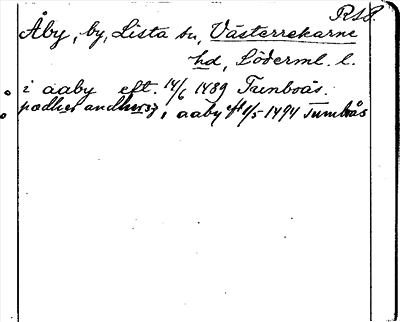 RSB.
Åby, by, Lista sn, Västerrekarne
hd, Söderml. l.
i aaby eft. 14/6 1489 Tumboås.
pædher andhers, i aaby eft 1/5 1494 Tumboås